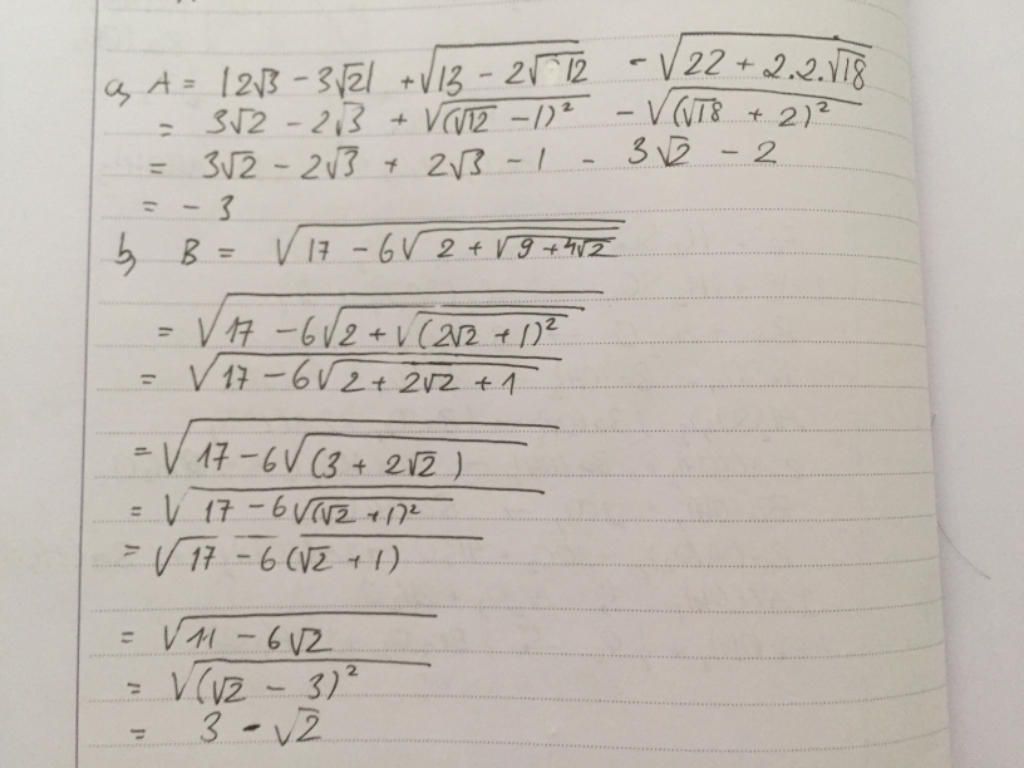 a, A = |2√3 - 3√2| + √(13 - 2√12) - √(22 + 2.2.√18)
= 3√2 - 2√3 + √((√12 - 1)²) - √((√18 + 2)²)
= 3√2 - 2√3 + 2√3 - 1 - 3√2 - 2
= - 3
b, B = √(17 - 6√(2 + √(9 + 4√2)))
= √(17 - 6√(2 + √((2√2 + 1)²)))
= √(17 - 6√(2 + 2√2 + 1))
= √(17 - 6√(3 + 2√2))
= √(17 - 6√((√2 + 1)²))
= √(17 - 6(√2 + 1))
= √(11 - 6√2)
= √((√2 - 3)²)
= 3 - √2